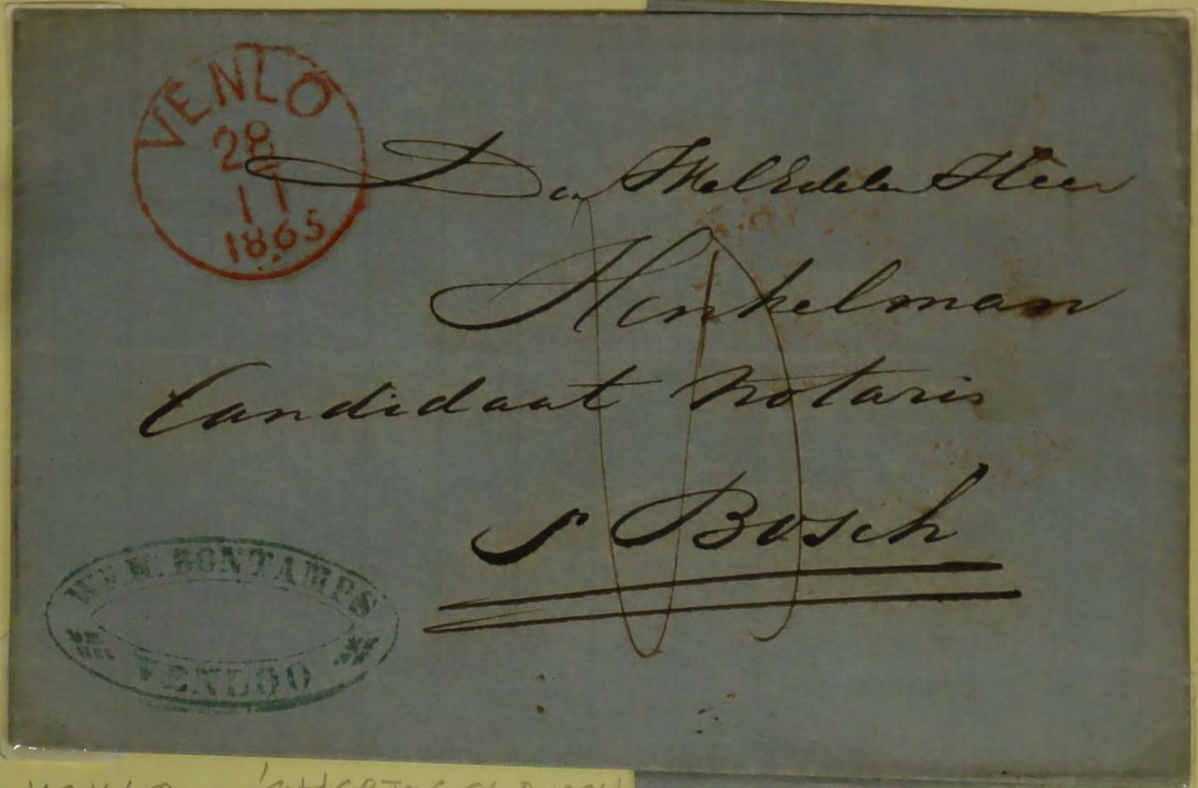 VENLO
28
11
1865
Den WelEdelen Heer
Henkelman
Candidaat Notaris
s Bosch
M. BONTAMPS
VENLOO